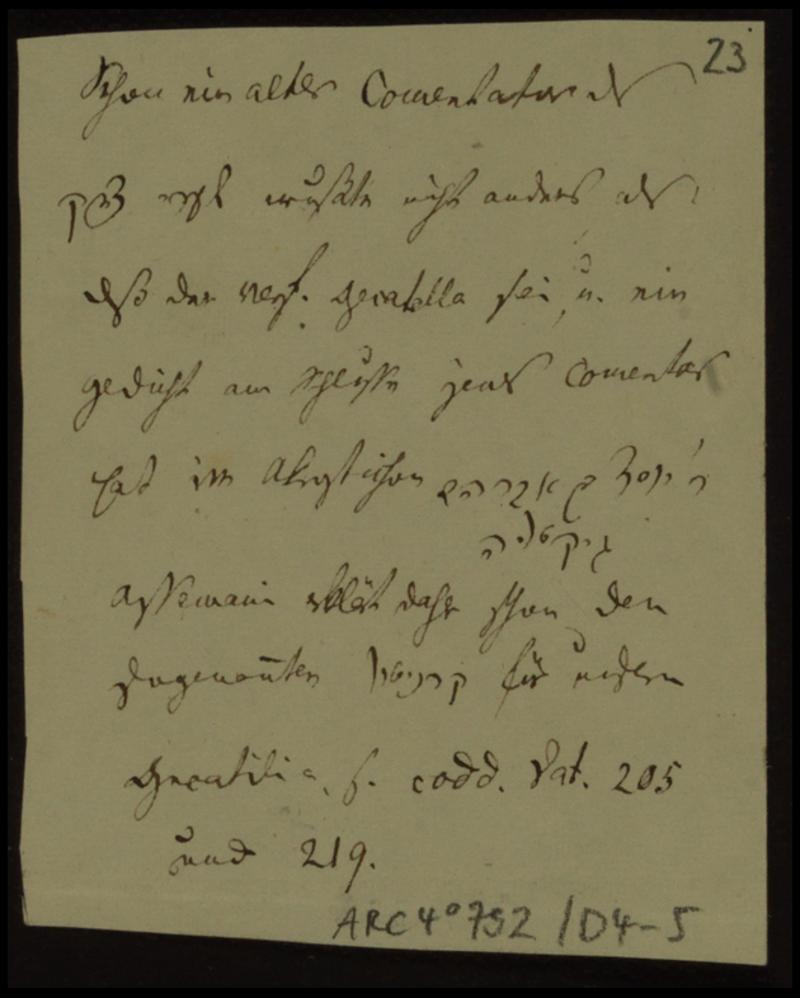 23
Schon ein alter Comentator des
wußte nicht anders als
daß der Verf. Gecatilla sei, u. ein
Gedicht am Schlusse jenes Comentars
hat im Akrostichon ר' יוסף בן אברהם
גיקטליה
Assemani erklärt daher schon den
sogenañten קרניטול für
Gecatilia, s. codd. Vat. 205
und 219.
ARC 4° 792 / D4-5